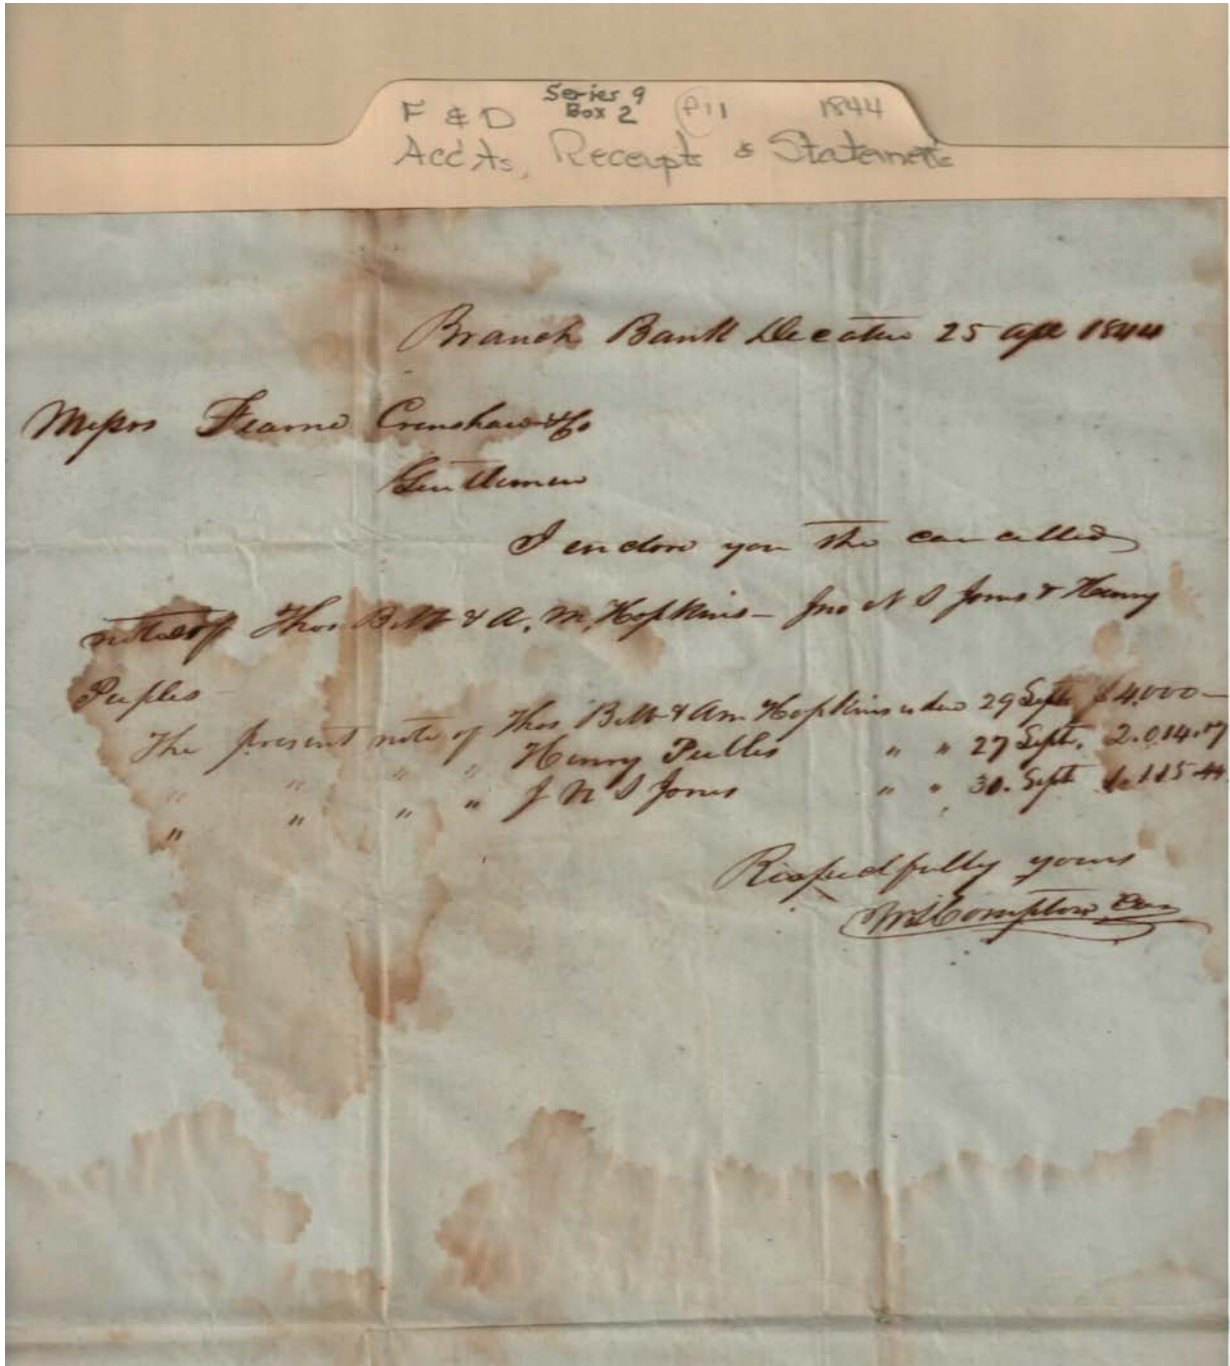 Series 9
F & D Box 2 F11 1844
Accts, Receipts & Statements
Branch Bank Decatur 25 Apl 1844
Messrs Fearne Crenshaw & Co
Gentlemen
I enclose you the cancelled
notes of Thos Bibb & A. M. Hopkins — Jno N S Jones & Henry
Peebles
The present note of Thos Bibb & Am Hopkins is due 29 Sept $4,000—
" " " " Henry Peebles " " 27 Sept. 2.014.17
" " " " J N S Jones " " 30. Sept 1.115 44
Respectfully yours
Compton